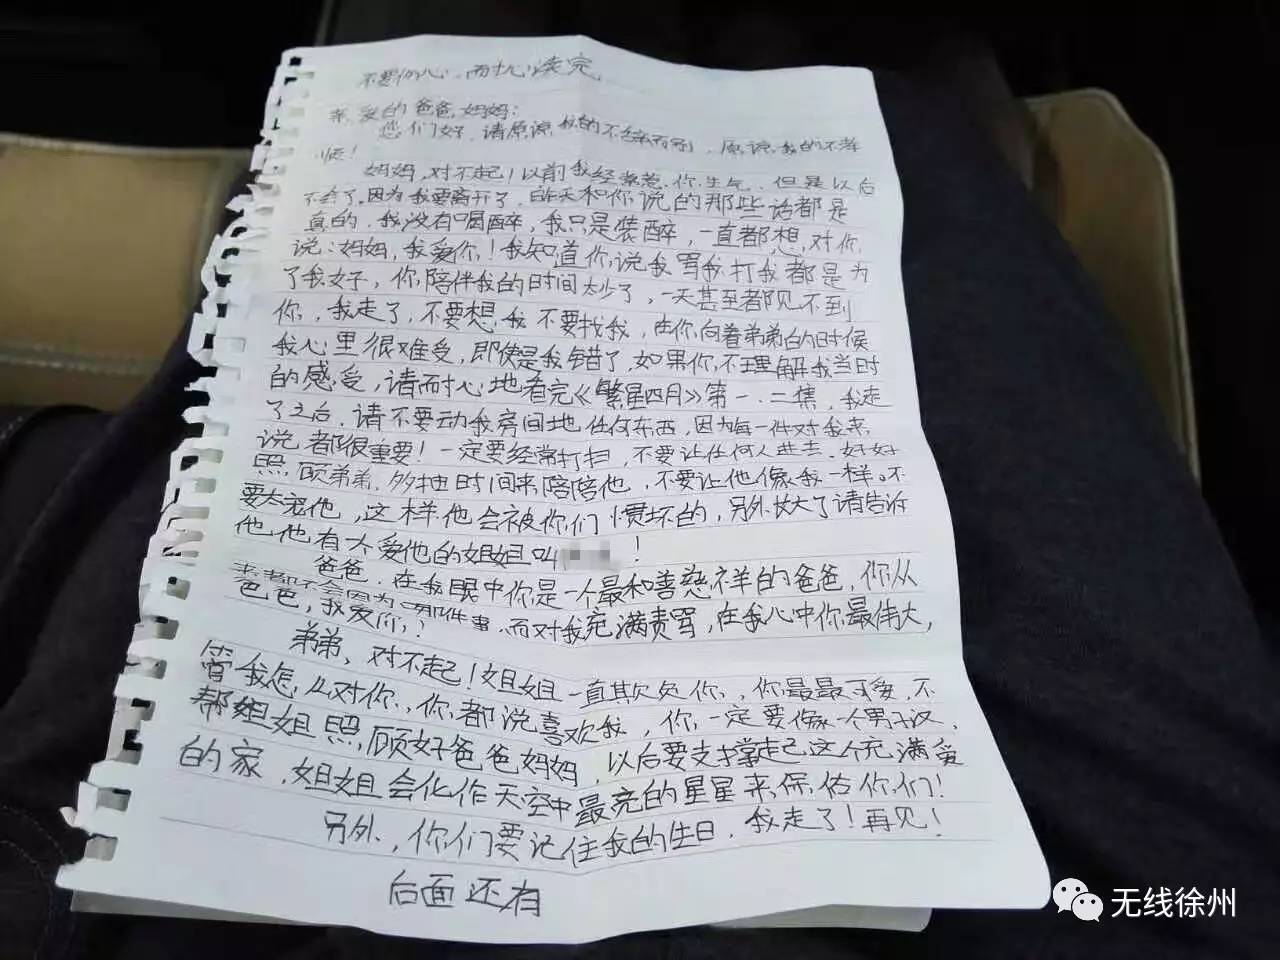 不要伤心，耐心读完
亲爱的爸爸妈妈：
您们好，请原谅我的不辞而别，原谅我的不孝
顺！
妈妈，对不起！以前我经常惹你生气，但是以后
不会了，因为我要离开了，昨天和你说的那些话都是
真的，我没有喝醉，我只是装醉，一直都想对你
说：妈妈，我爱你！我知道你说我骂我打我都是为
了我好，你陪伴我的时间太少了，一天甚至都见不到
你，我走了，不要想我不要找我，在你向着弟弟的时候
我心里很难受，即使是我错了，如果你不理解我当时
的感受，请耐心地看完《繁星四月》第一、二集，我走
了之后，请不要动我房间地任何东西，因为每一件对我来
说都很重要！一定要经常打扫，不要让任何人进去，好好
照顾弟弟，多抽时间来陪陪他，不要让他像我一样。不
要太宠他，这样他会被你们惯坏的，另外长大了请告诉
他，他有个爱他的姐姐叫！
爸爸，在我眼中你是一个最和善慈祥的爸爸，你从
来都不会因为那件事，而对我充满责骂，在我心中你最伟大，
爸爸，我爱你！
弟弟，对不起！姐姐一直欺负你，你最最可爱，不
管我怎么对你，你都说喜欢我，你一定要像一个男子汉，
帮姐姐照顾好爸爸妈妈，以后要支撑起这个充满爱
的家，姐姐会化作天空中最亮的星星来保佑你们！
另外，你们要记住我的生日，我走了！再见！
后面还有
无线徐州